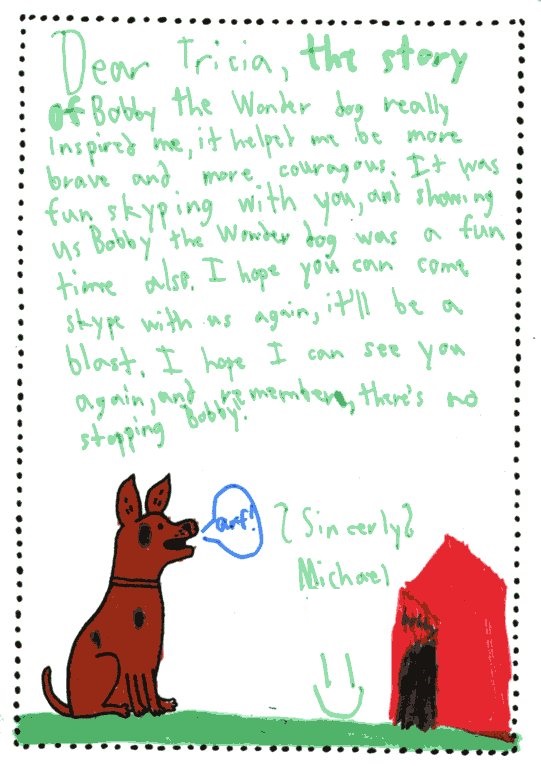 Dear Tricia, the story
of Bobby the Wonder dog really
inspired me, it helped me be more
brave and more couragous. It was
fun skyping with you, and showing
us Bobby the Wonder dog was a fun
time also. I hope you can come
skype with us again, it'll be a
blast. I hope I can see you
again, and remember, there's no
stopping Bobby!
arf!
Sincerly
Michael